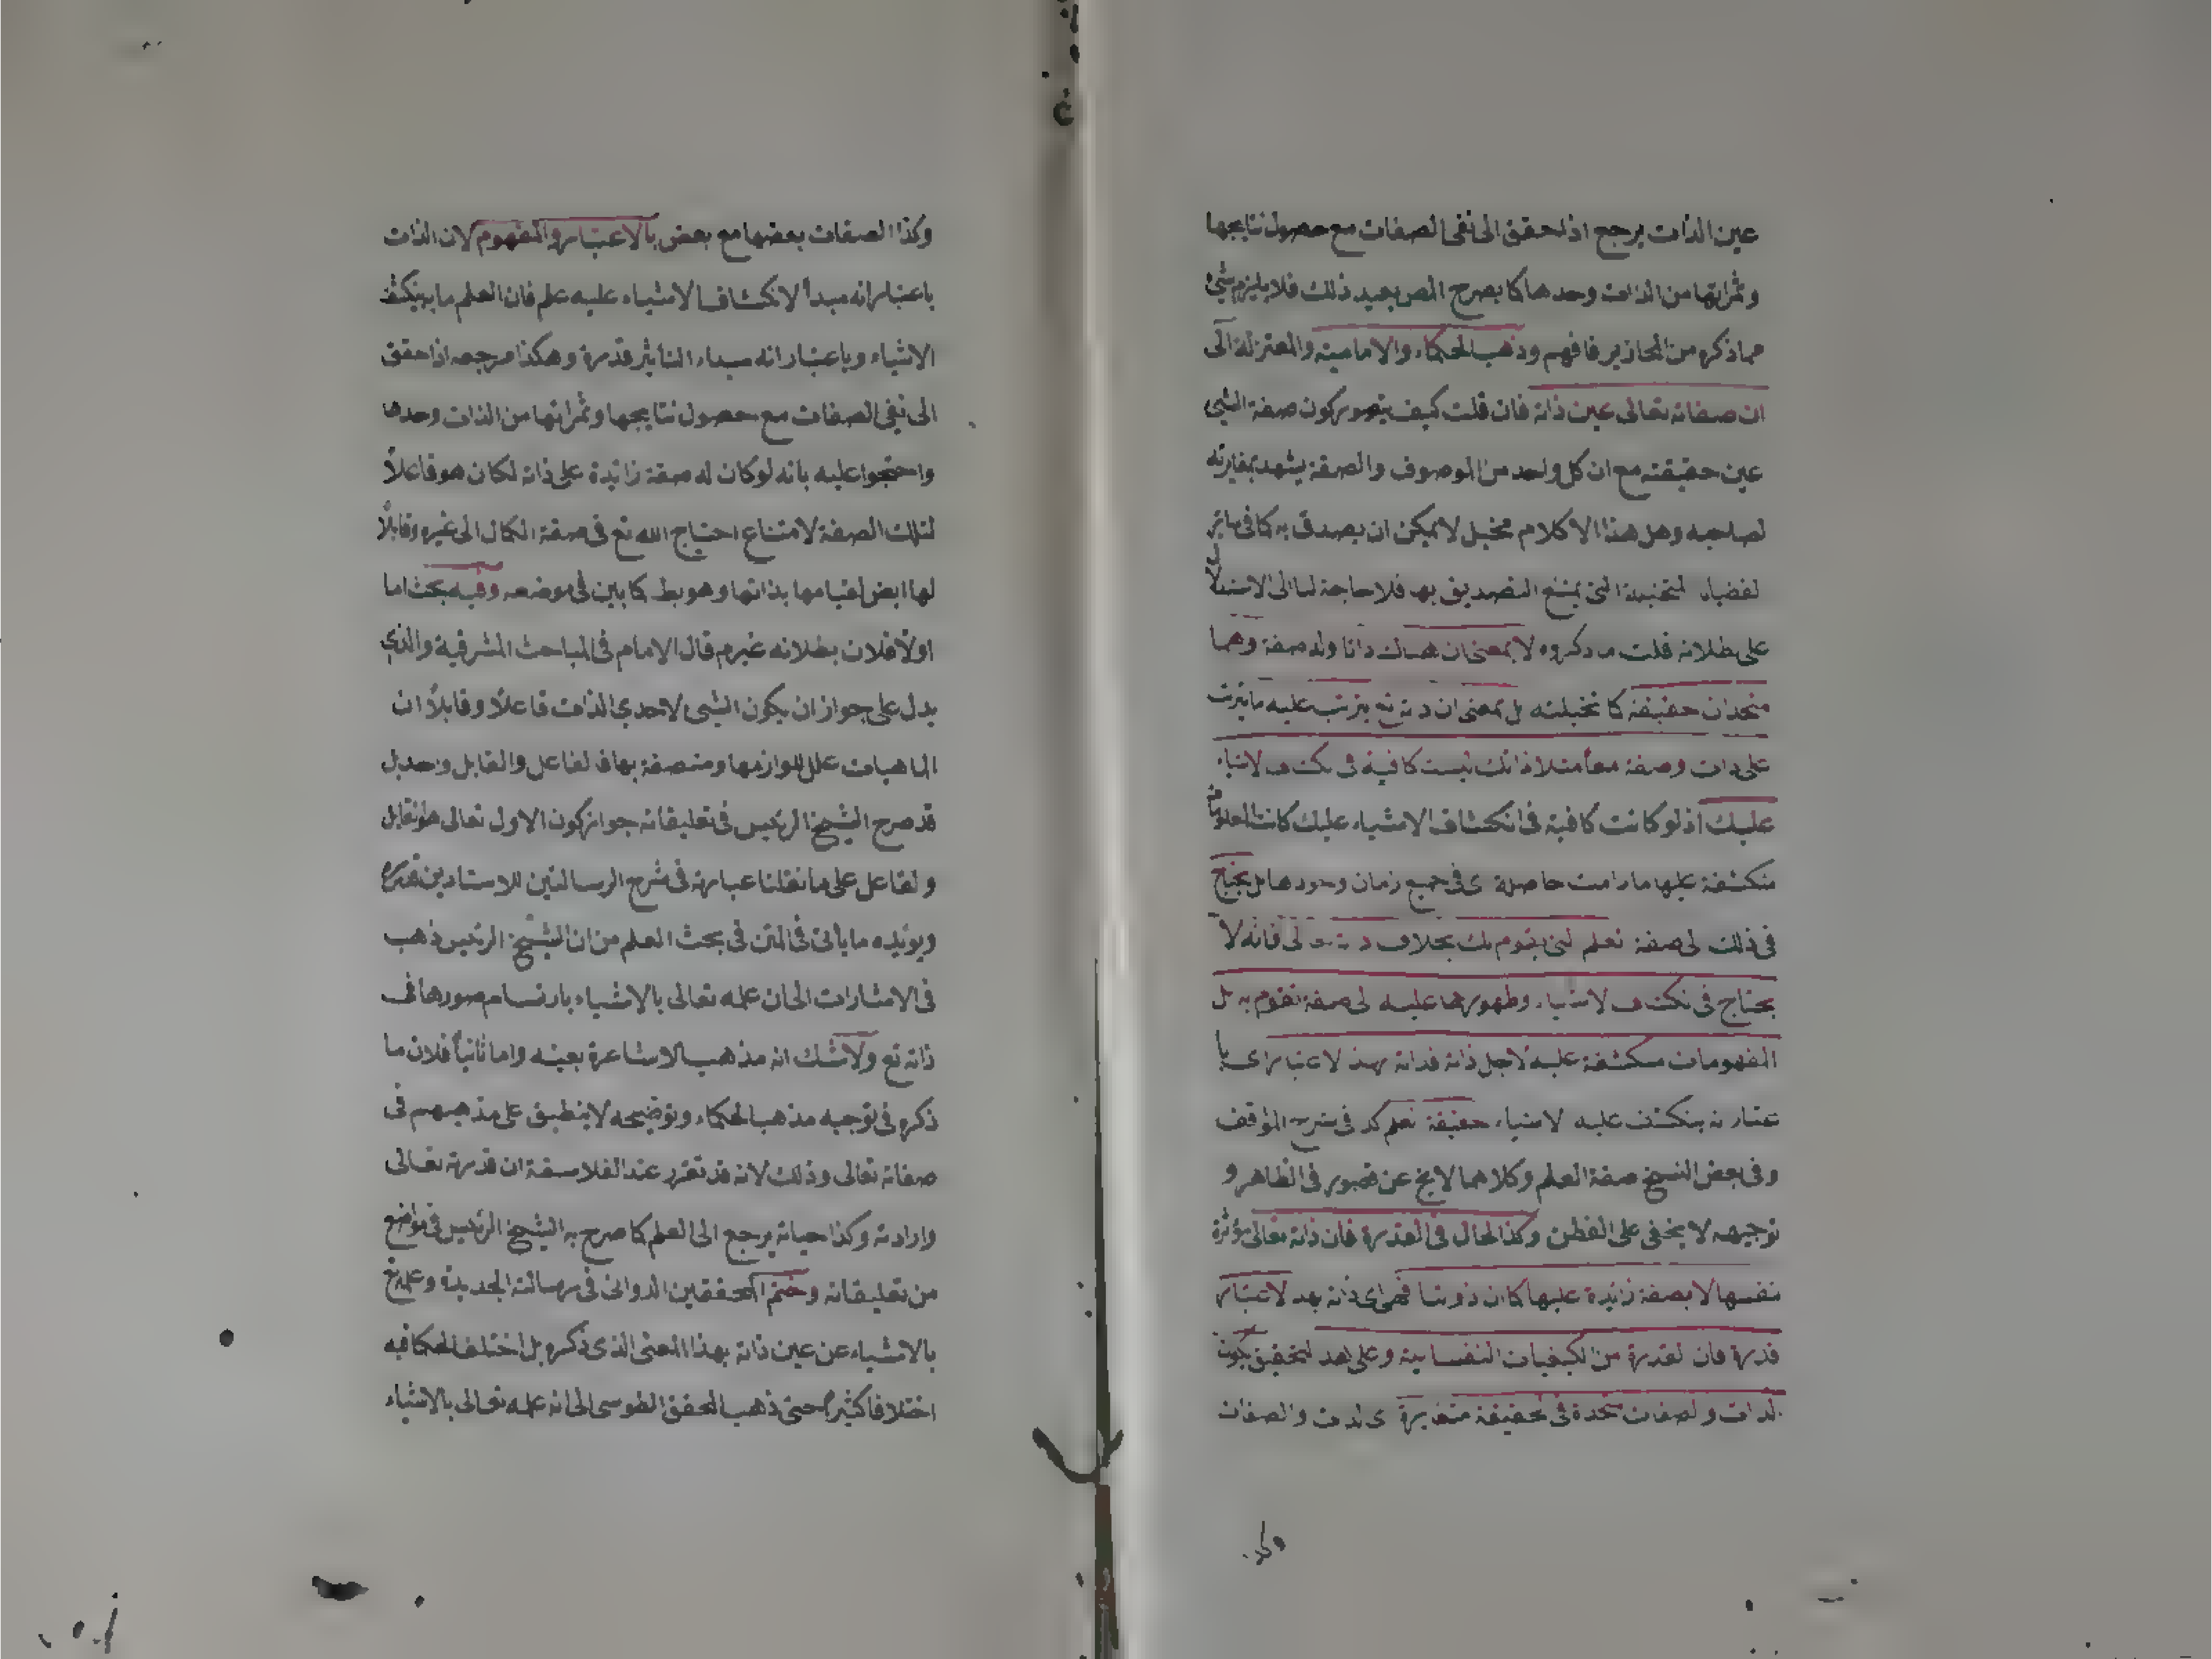 عين الذات يرجع اذا حقق الى نفى الصفات مع حصول نتايجها
وثمراتها من الذات وحدها كا يصرح المص بعيد ذلك فلا يلزم شئ
مما ذكره من المحاذير فافهم وذهب الحكماء والامامية والمعتزلة الى
ان صفاته تعالى عين ذاته فان قلت كيف يتصور كون صفة الشئ
عين حقيقته مع ان كل واحد من الموصوف والصفة يشهد بمغايرته
لصاحبه وهل هذا الا كلام مخيل لا يمكن ان يصدق به كا فى سائر
لقضايا المتخيلة التى يمتنع التصديق بها فلا حاجة لنا الى الاستدلال
على بطلانه قلت ما ذكروه لا بمعنى ان هناك ذاتا وله صفة وهما
متحدان حقيقة كا تخيلته بل بمعنى ان ذاته تع يترتب عليه ما يترتب
على ذات وصفة معا مثلا ذاتك ليست كافية فى نكشاف لاشياء
عليك اذ لو كانت كافية فى انكشاف الاشياء عليك كانت المعلومات
منكشفة عليها ما دامت حاصلة ى فى جميع زمان وجودها بل يحتاج
فى ذلك لى صفة لعلم لتى يقوم بك بخلاف ذاته تعالى فانه لا
يحتاج فى نكشاف لاشياء وظهورها عليه لى صفة تقوم به بل
المفهومات منكشفة عليه لاجل ذاته فذاته بهذا لاعتبار اى با
عتبار نه ينكشف عليه لاشياء حقيقة لعلم كذ فى شرح المواقف
وفى بعض النسخ صفة العلم وكلاهما لا يخ عن قصور فى الظاهر و
توجيهه لا يخفى على الفطن وكذا الحال فى القدرة فان ذاته تعالى مؤثرة
بنفسها لا بصفة زائدة عليها كا فى ذوتنا فهى اى ذاته بهذ لاعتبار
قدرة فان لقدرة من الكيفيات النفسانية وعلى هذ لتحقيق يكون
لذات و لصفات متحدة فى لحقيقة متغايرة ى لذت والصفات
وكذا الصفات بعضها مع بعض بالاعتبار والمفهوم لان الذات
باعتبار انه مبدأ لانكشاف الاشياء عليه علم فان العلم ما به ينكشف
الاشياء وباعتبار انه مبداء التاثير قدرة وهكذا مرجعه اذا حقق
الى نفى الصفات مع حصول نتايجها وثمراتها من الذات وحدها
واحتجوا عليه بانه لو كان له صفة زائدة على ذاته لكان هو فاعلاً
لتلك الصفة لامتناع احتياج الله تع فى صفة الكمال الى غيره وقابلاً
لها ايض لقيامها بذاتها وهو بط كا بين فى موضعه وفيه بحث اما
اولاً فلان بطلانه غيرم قال الامام فى المباحث المشرقية والذى
يدل على جواز ان يكون الشئ الاحدى الذات فاعلاً وقابلاً ان
الماهيات علل للوازمها ومتصفة بها فالفاعل والقابل واحد بل
قد صرح الشيخ الرئيس فى تعليقاته جواز كون الاول تعالى هو القابل
و لفاعل على ما نقلنا عبارته فى شرح الرسالتين للاستادين قدس سره
ويؤيده ما ياتى فى المتن فى بحث العلم من ان الشيخ الرئيس ذهب
فى الاشارات الى ان علمه تعالى بالاشياء بارتسام صورها فى
ذاته تع ولا شك انه مذهب الاشاعرة بعينه واما ثانياً فلان ما
ذكره فى توجيه مذهب الحكماء وتوضيحه لا ينطبق على مذهبهم فى
صفاته تعالى وذلك لانه قد تقرر عند الفلاسفة ان قدرته تعالى
وارادته وكذا حياته يرجع الى العلم كا صرح به الشيخ الرئيس فى مواضع
من تعليقاته وختم المحققين الدوانى فى رسالته الجديدة وعلمه تع
بالاشياء عن عين ذاته بهذا المعنى الذى ذكره بل اختلف الحكماء فيه
اختلافا كثيراً حتى ذهب المحقق الطوسى الى ان علمه تعالى بالاشياء